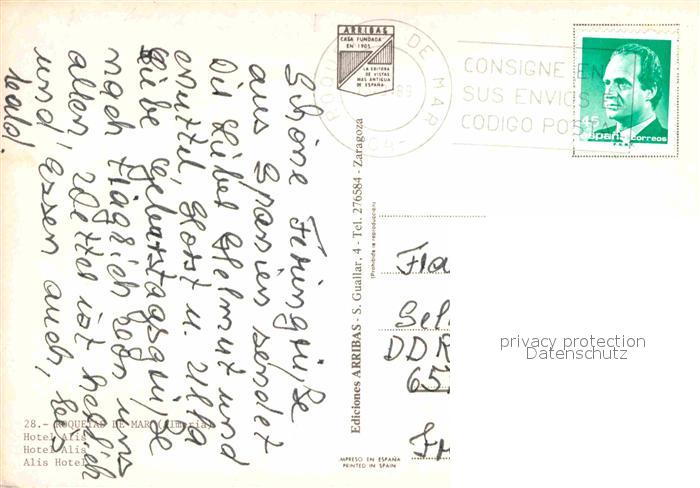 Schöne Feriengrüße
aus Spanien sendet
Dir lieber Helmut und
Horst u. Ulla
liebe Geburtstagsgrüße
nach
allen, Wetter ist herrlich
und Essen auch, bis
bald.
28.- ROQUETAS DE MAR (Almería)
Hotel Alis
Hotel Alis
Alis Hotel
ARRIBAS
CASA FUNDADA
EN 1905
LA EDITORA
DE VISTAS
MAS ANTIGUA
DE ESPAÑA
Ediciones ARRIBAS - S. Guallar, 4 - Tel. 276584 - Zaragoza
(Prohibida la reproducción)
IMPRESO EN ESPAÑA
PRINTED IN SPAIN
DE MAR
CONSIGNE EN
SUS ENVIOS
CODIGO POST
45
españa correos
DDR
65
privacy protection
Datenschutz